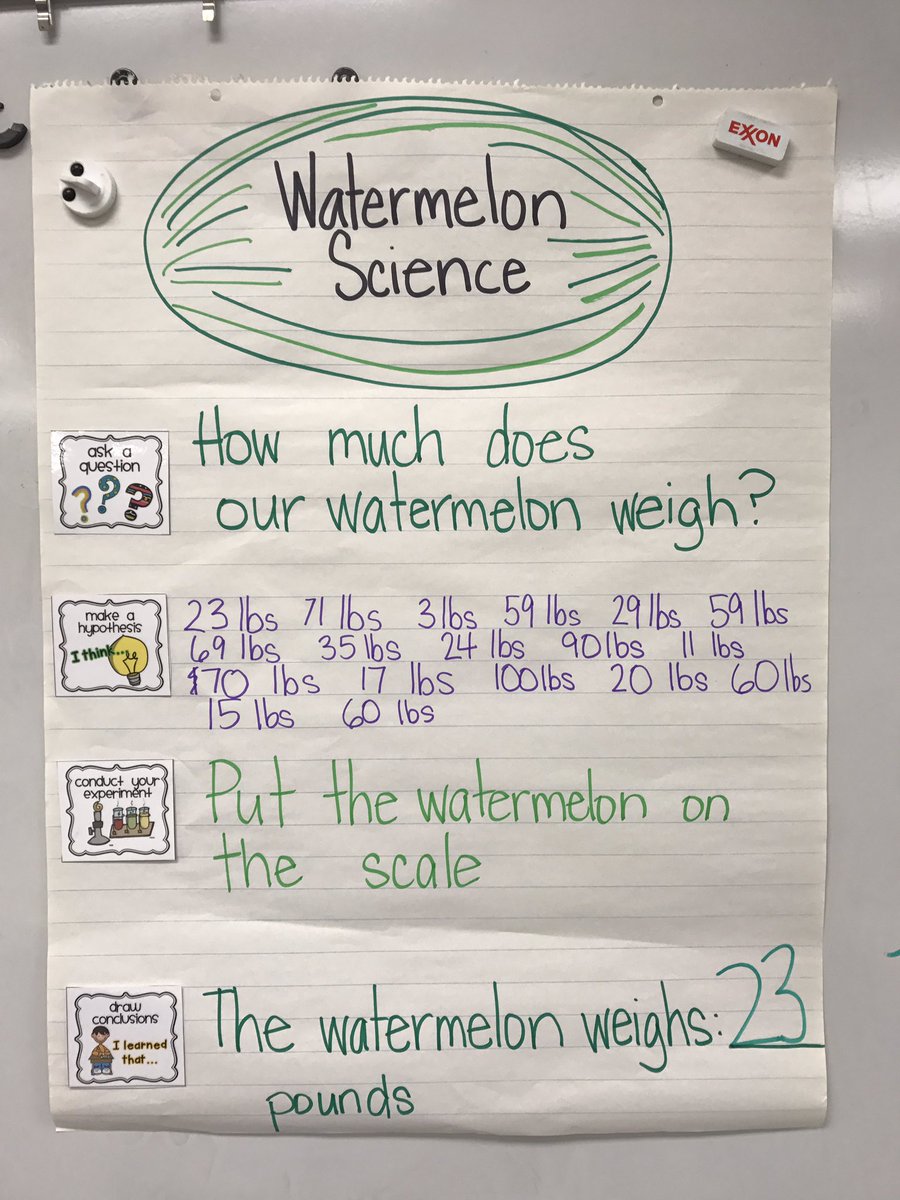 EXXON
Watermelon
Science
ask a
question
???
How much does
our watermelon weigh?
make a
hypothesis
I think...
23 lbs 71 lbs 3 lbs 59 lbs 29 lbs 59 lbs
69 lbs 35 lbs 24 lbs 90 lbs 11 lbs
70 lbs 17 lbs 100 lbs 20 lbs 60 lbs
15 lbs 60 lbs
conduct your
experiment
Put the watermelon on
the scale
draw
conclusions
I learned
that...
The watermelon weighs: 23
pounds